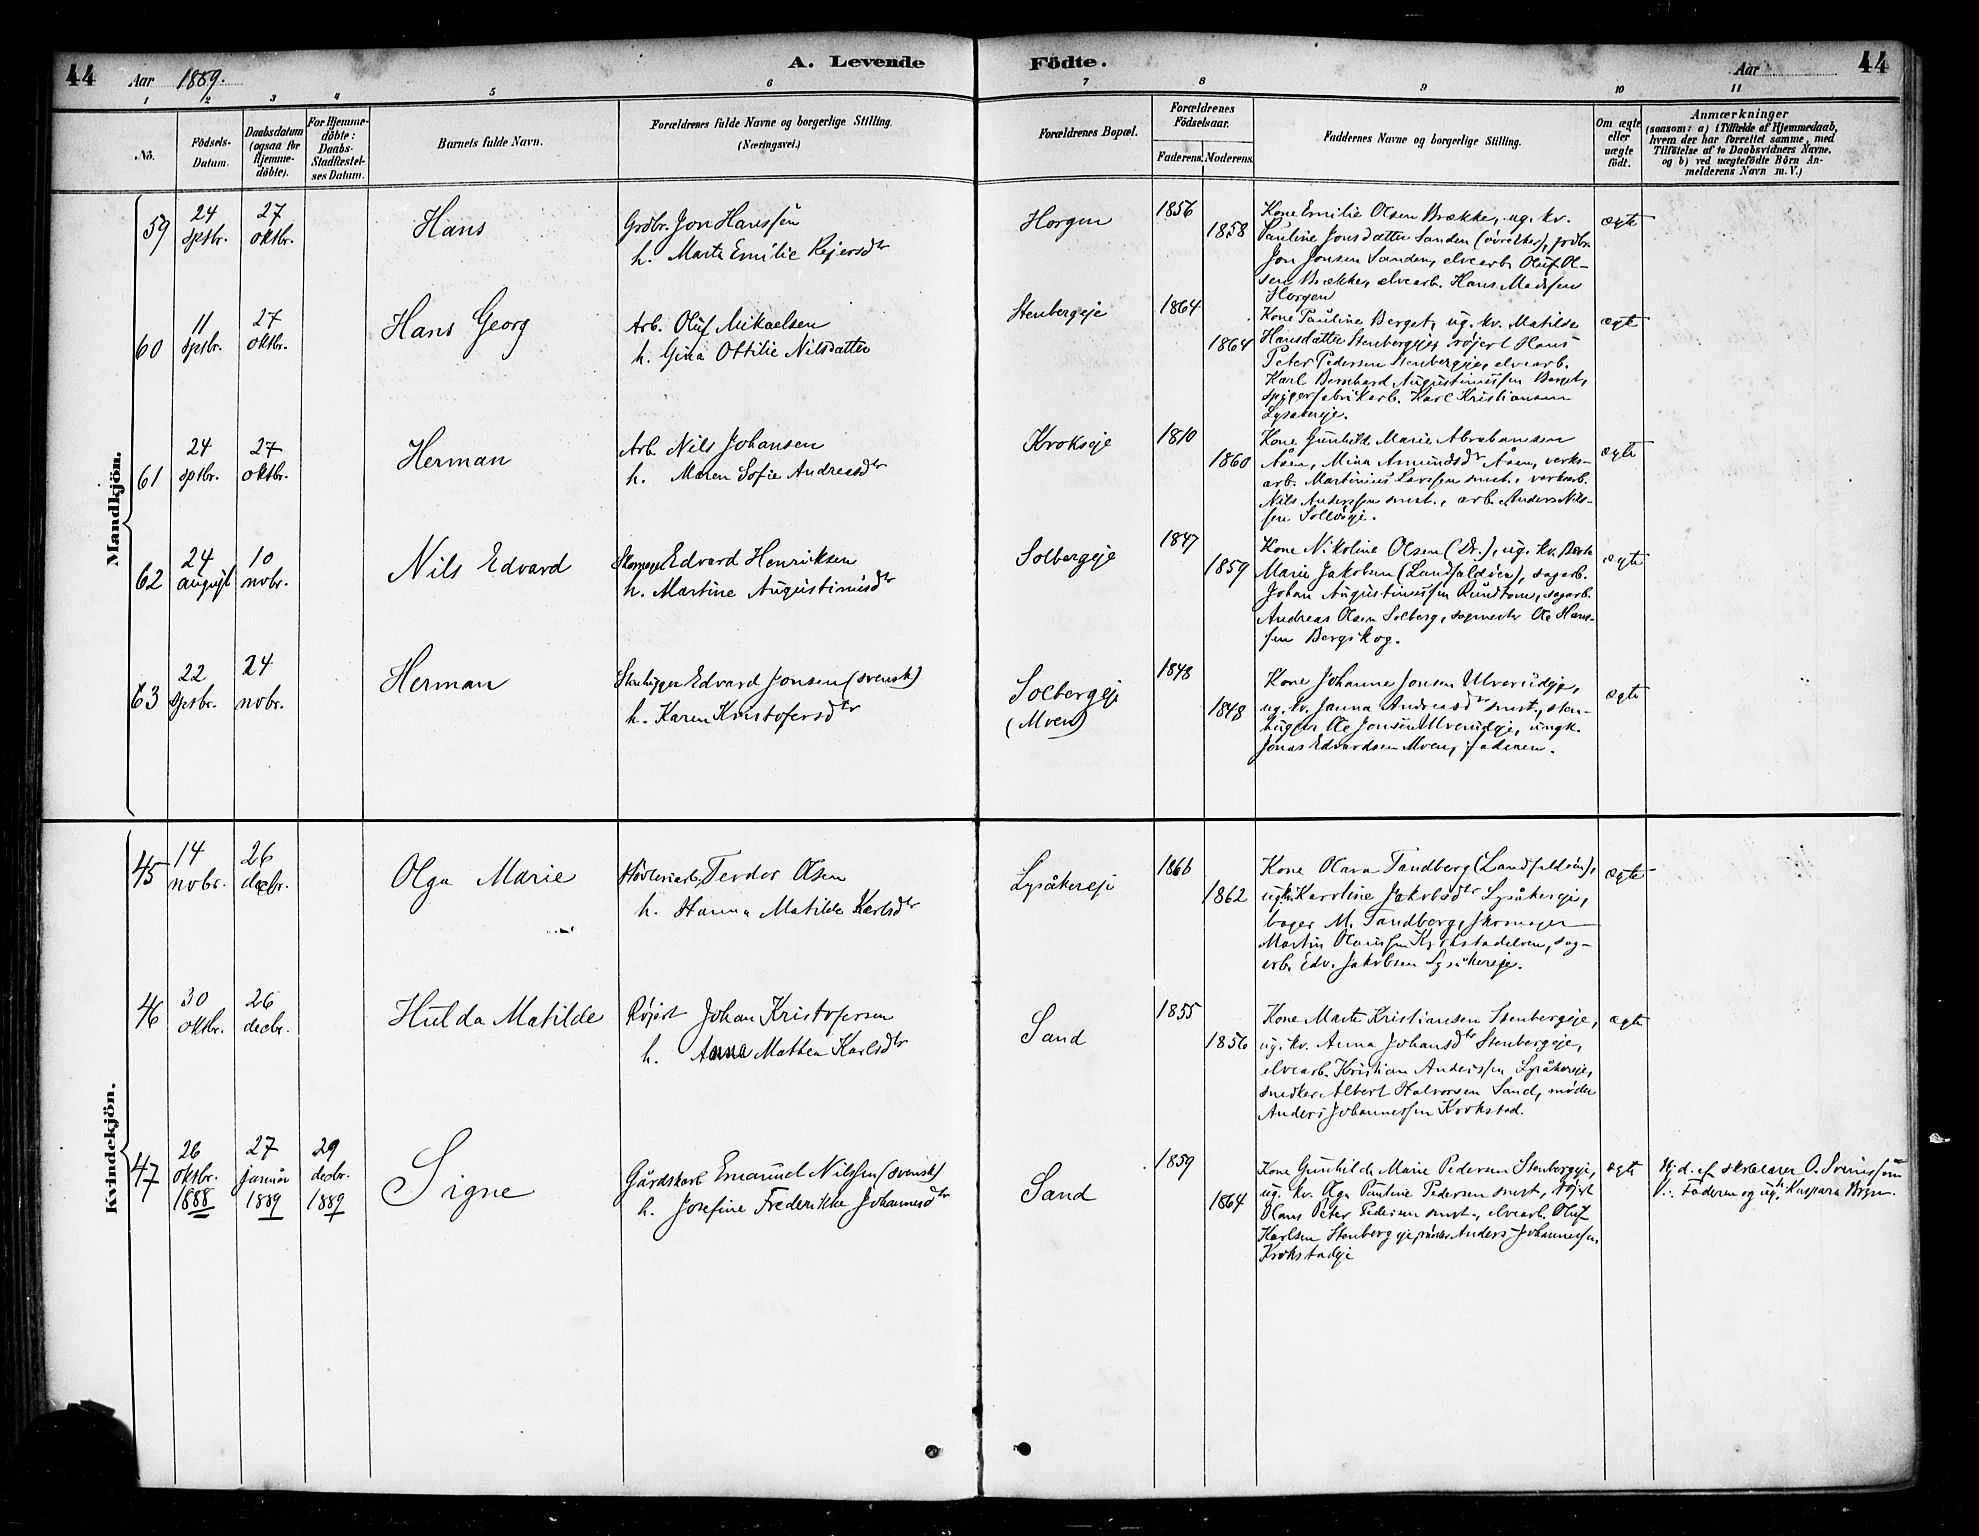 44
Aar 1889.
A. Levende
Födte.
Aar
44
1 2 3 4 5 6 7 8 9 10 11
No.
Födsels-
Datum.
Daabsdatum
(ogsaa for
Hjemme-
döbte).
For Hjemme-
döbte:
Daabs-
Stadfæstel-
ses Datum.
Barnets fulde Navn.
Forældrenes fulde Navne og borgerlige Stilling.
(Næringsvei.)
Forældrenes Bopæl.
Forældrenes
Födselsaar.
Faderens.
Moderens.
Faddernes Navne og borgerlige Stilling.
Om ægte
eller
uægte
födt.
Anmærkninger
(saasom: a) i Tilfælde af Hjemmedaab,
hvem der har forrettet samme, med
Tilföielse af to Daabsvidners Navne,
og b) ved uægtefödte Börn An-
melderens Navn m. V.)
Mandkjön.
59
24
sptbr.
27
oktbr.
Hans
Grdbr. Jon Hanssen
h. Marte Emilie Rejersdtr
Horgen
1856
1858
Kone Emilie Olsen Brække, ug. kv.
Pauline Jonsdatter Sanden (øvre Eker), grdbr.
Jon Jonsen Sanden, elvearb. Oluf Ol-
sen Brække, elvearb. Hans Madssen
Horgen
ægte
60
11
sptbr.
27
oktbr.
Hans Georg
Arb. Oluf Mikaelsen
h. Gina Ottilie Nilsdatter
Stenbergeje
1864
1864
Kone Pauline Berget, ug. kv. Matilde
Hansdatter Stenbergeje, røjert Hans
Peter Pedersen Stenbergeje, elvearb.
Karl Bernhard Augustinussen Berget,
spigerfabrikarb. Karl Kristiansen
Lysakereje.
ægte
61
24
sptbr.
27
oktbr.
Herman
Arb. Nils Johansen
h. Maren Sofie Andreasdtr
Krokseje
1810
1860
Kone Gunhild Marie Abrahamsen
Åsen, Mina Asmundsdtr Åsen, verks-
arb. Martinius Larssen smst., verksarb.
Nils Anderssen smst., arb. Anders Nils-
sen
ægte
62
24
august
10
novbr.
Nils Edvard
Skomager Edvard Henriksen
h. Martine Augustinusdtr
Solbergeje
1847
1859
Kone Nikoline Olsen (Dr.), ug. kv. Berte
Marie Jakobsen (Landfaldøen), sagarb.
Johan Augustinussen Rundtom, sagarb.
Andreas Olsen Solberg, sagmester Ole Hans-
sen Bergskog.
ægte
63
22
sptbr.
24
novbr.
Herman
Stenhugger Edvard Jonsen (svensk)
h. Karen Kristofersdtr
Solbergeje
(Moen)
1848
1848
Kone Johanne Jonsen Ulverudeje,
ug. kv. Janna Andreasdtr smst., sten-
hugger Ole Jonsen Ulverudeje, ungk.
Jonas Edvardsen Moen, faderen.
ægte
Kvindekjön.
45
14
novbr.
26
decbr.
Olga Marie
Høvleriarb. Teodor Olsen
h. Hanna Matilde Karlsdtr
Lysåkereje
1866
1862
Kone Olava Tandberg (Landfaldøen),
ug. kv. Karoline Jakobsdtr Lysåkereje,
bager M. Tandberg, skomager
Martin Olaussen Krokstadelven, sag-
arb. Edv. Jakobsen Lysåkereje.
ægte
46
30
oktbr.
26
decbr.
Hulda Matilde
Røjert Johan Kristofersen
h. Anna Mathea Karlsdtr
Sand
1855
1856
Kone Marte Kristiansen Stenbergeje,
ug. kv. Anna Johansdtr Stenbergeje,
elvearb. Kristian Anderssen Lysåkereje,
snedker Albert Halvorsen Sand, møller
Anders Johannessen Krokstad.
ægte
47
26
oktbr.
1888
27
januar
1889
29
decbr.
1889
Signe
Gårdskarl Emanuel Nilssen (svensk)
h. Josefine Frederikke Johannesdtr
Sand
1859
1864
Kone Gunhilde Marie Pedersen Stenbergeje,
ug. kv. Olga Pauline Pedersen smst., røjert
Hans Peter Pedersen smst., elvearb. Oluf
Karlsen Stenbergeje, møller Anders Johannessen
Krokstadeje
ægte
Hj.d. af skolelærer O. Svenssen
V.: Faderen og ug. Kaspara